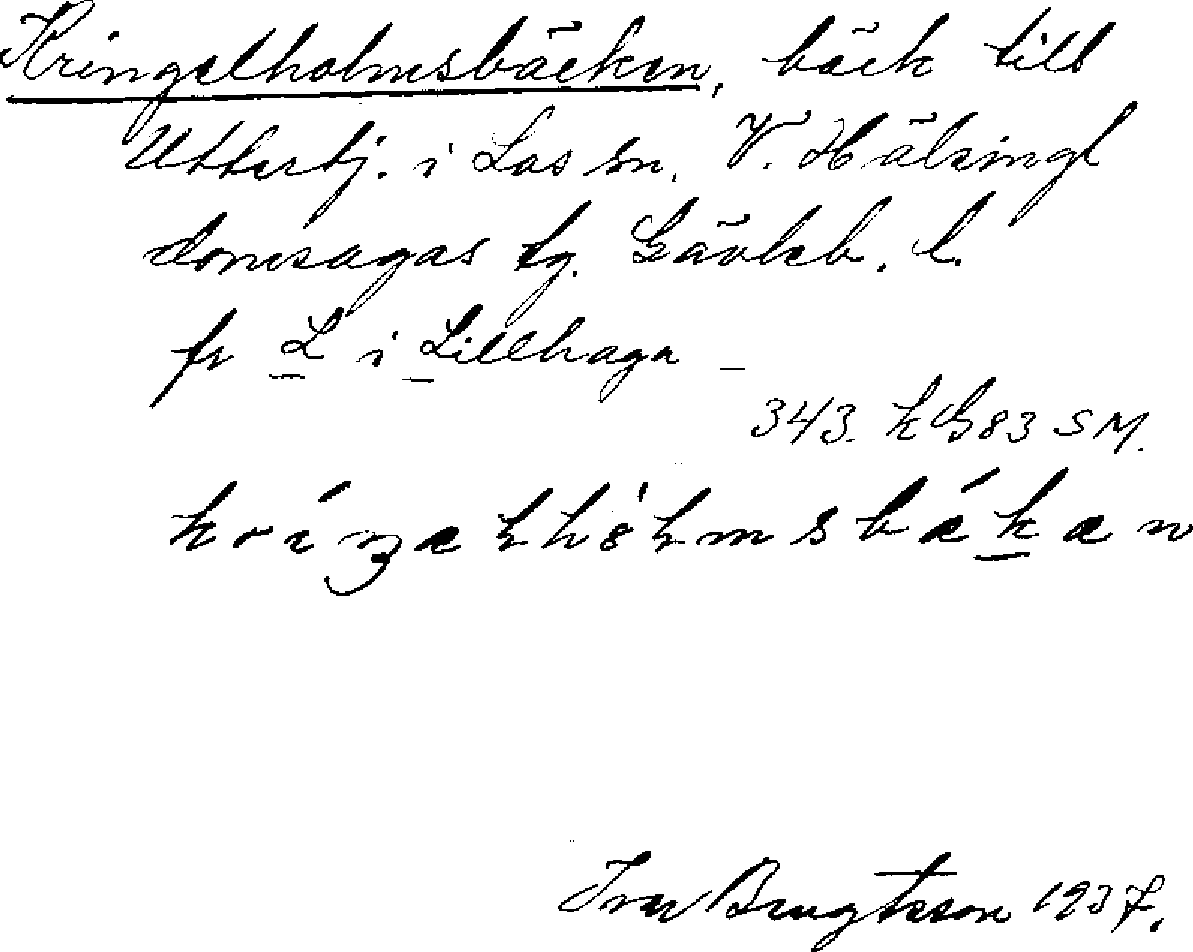 Kringelholmsbäcken, bäck till
Uttertj. i Los sn. V. Hälsingl
domsagas tg. Gävleb. l.
fr L i Lillhaga –
343. kG83 SM.
Ivar Bengtsson 1937.